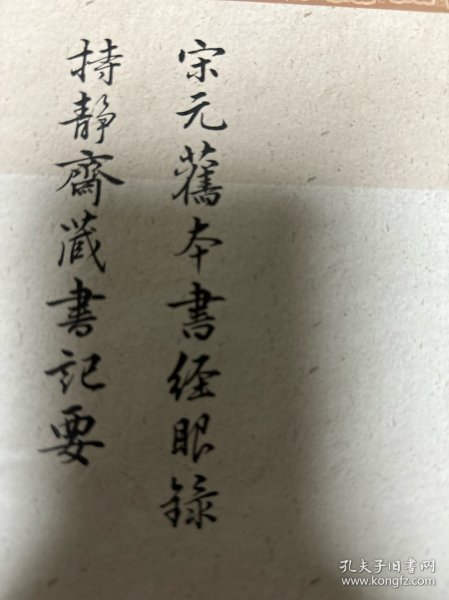 宋元舊本書經眼錄
持靜齋藏書記要
孔夫子旧书网
www.kongfz.com